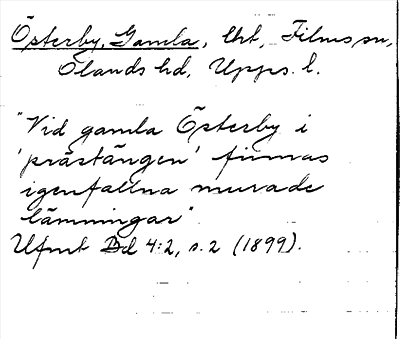 Österby, Gamla, lht, Films sn,
Ölands hd, Upps. l.
"Vid gamla Österby i
'prästängen' finnas
igenfallna murade
lämningar"
Ufmt Bd 4:2, s. 2 (1899).